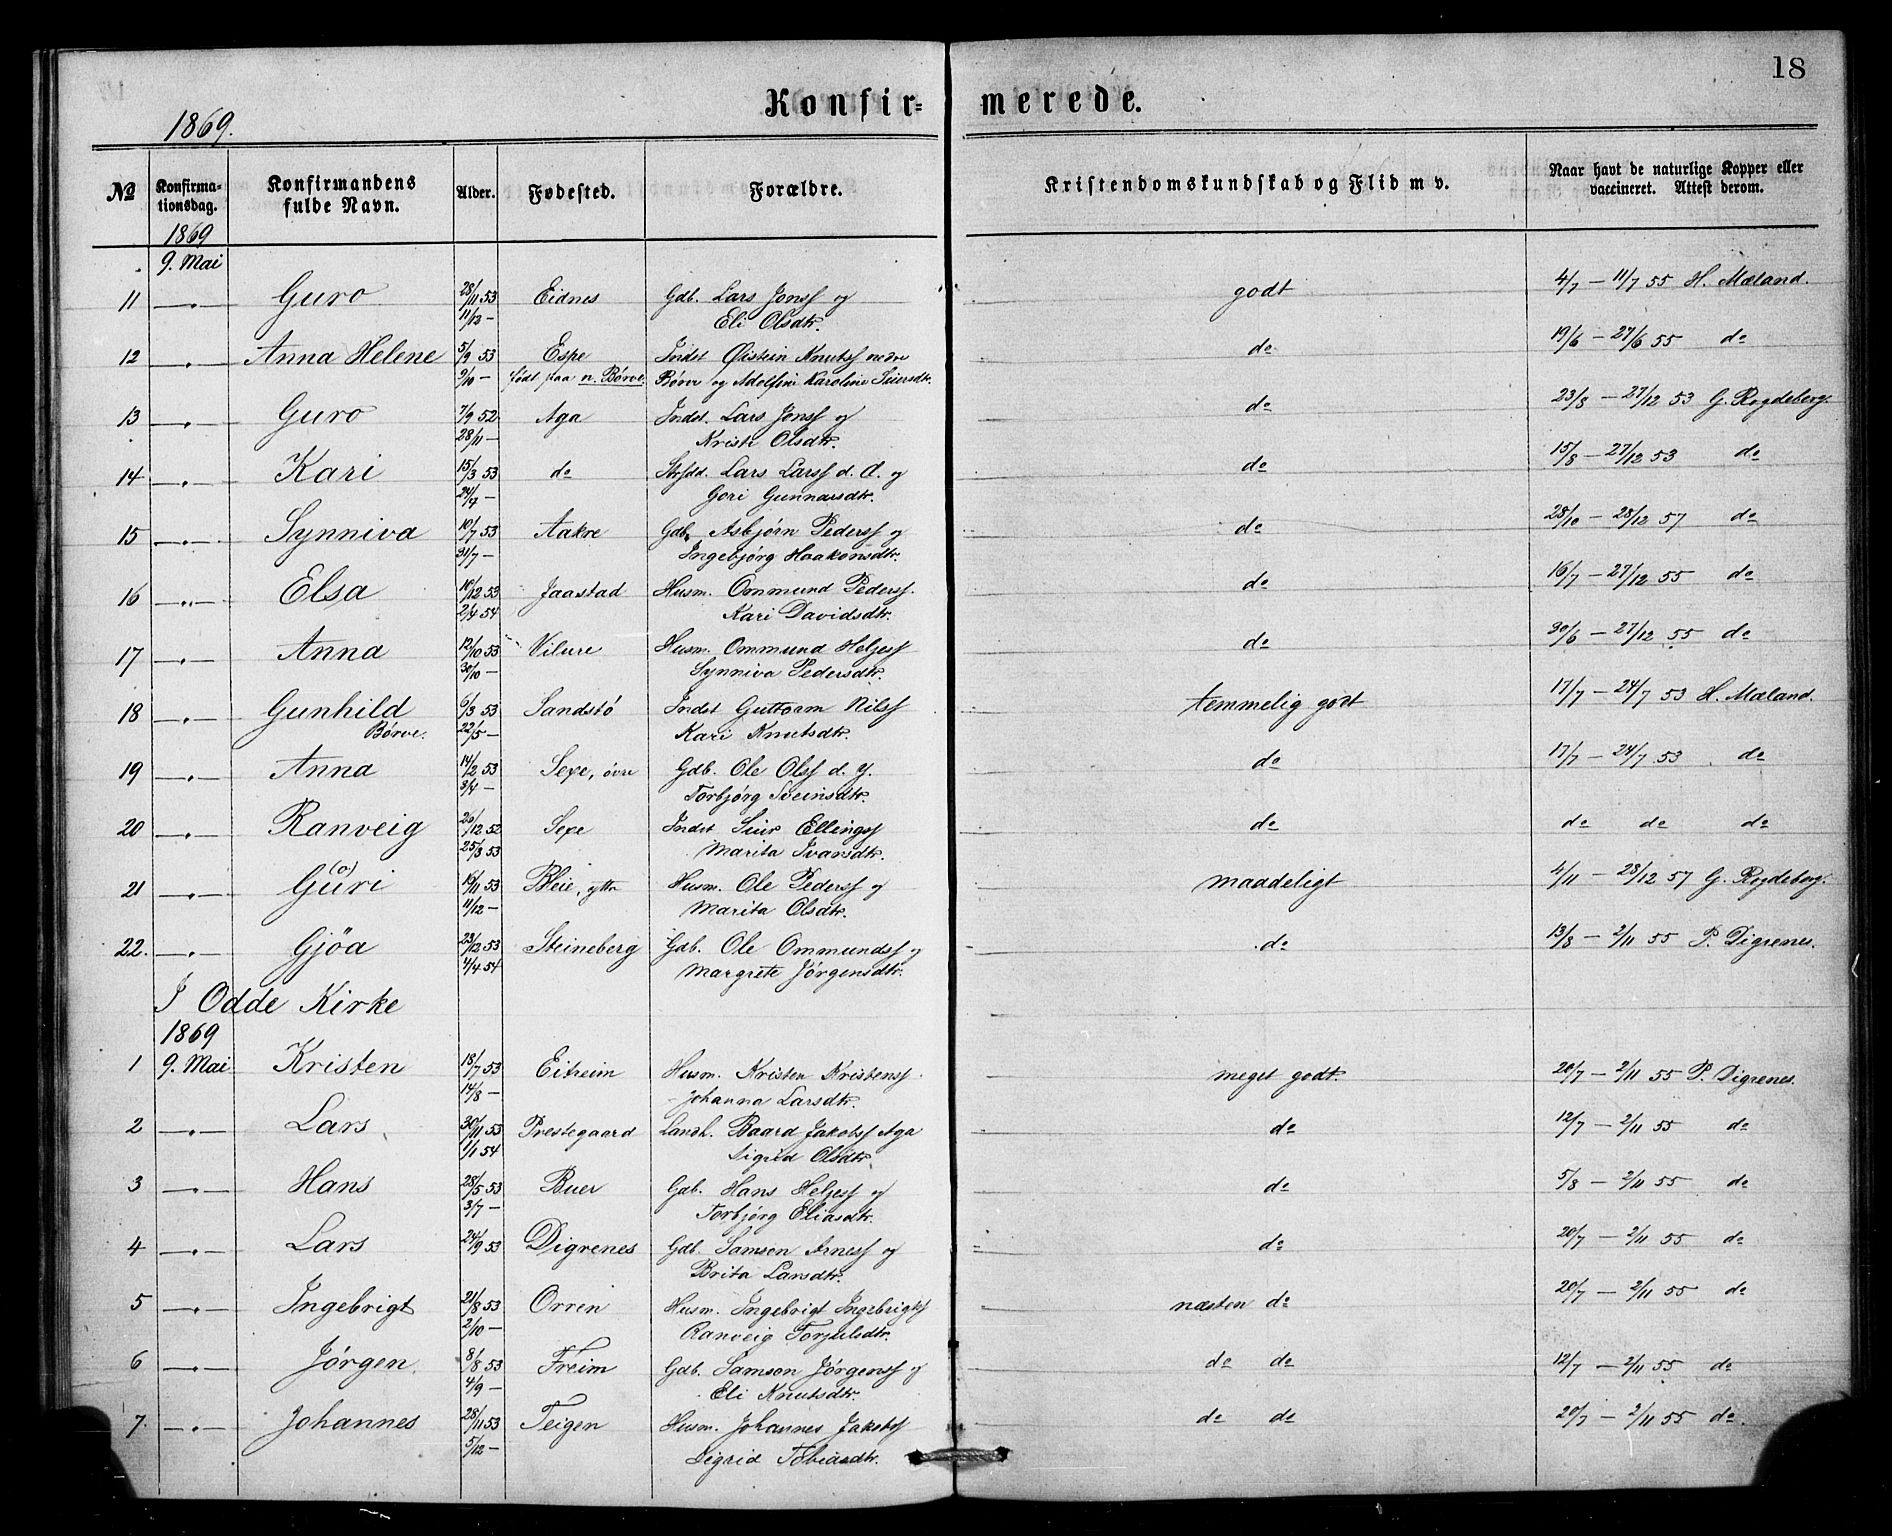 18
Konfir= merede.
1869.
No
Konfirma-
tionsdag.
Konfirmandens
fulde Navn.
Alder.
Fødested.
Forældre.
Kristendomskundskab og Flid m v.
Naar havt de naturlige Kopper eller
vaccineret. Attest derom.
1869
9. Mai
11 —„— Guro 28/11 53 Eidnes Gdb. Lars Jonss og godt 4/7 – 11/7 55 H. Mæland.
11/12 – Eli Olsdtr.
12 —„— Anna Helene 5/9 53 Espe Indst Øistein Knutss nedre do 19/6 – 27/6 55 do
9/10 – født paa n. Børve. Børve og Adolfine Karoline Siursdtr.
13 —„— Guro 7/9 52 Aga Indst. Lars Jonss og do 23/8 – 27/12 53 G. Rogdeberg.
28/11 – Kristi Olsdtr.
14 —„— Kari 15/3 53 do Lars Larss d. A. og do 15/8 – 27/12 53 do
24/7 – Gori Gunnarsdtr.
15 —„— Synniva 10/7 53 Aakre Gdb. Asbjørn Pederss og do 28/10 – 28/12 57 do
31/7 – Ingebjørg Haakonsdtr.
16 —„— Elsa 10/12 53 Jaastad Husm. Ommund Pederss. do 16/7 – 27/12 55 do
2/4 54 Kari Davidsdtr.
17 —„— Anna 12/10 53 Vilure Husm. Ommund Heljess do 30/6 – 27/12 55 do
30/10 – Synniva Pedersdtr.
18 —„— Gunhild 6/3 53 Sandstö Indst Guttorm Nilss temmelig godt 17/7 – 24/7 53 H. Mæland.
Børve. 22/5 – Kari Knutsdtr.
19 —„— Anna 14/2 53 Sexe, øvre Gdb. Ole Olss d. y. do 17/7 – 24/7 53 do
3/4 – Torbjørg Sveinsdtr.
20 —„— Ranveig 26/12 52 Sexe Indst Siur Ellingss do do do do
25/3 53 Marita Ivarsdtr.
21 —„— Guri (o) 16/11 53 Bleie, ytre Husm. Ole Pederss og maadeligt 4/11 – 28/12 57 G. Rogdeberg.
11/12 – Marita Olsdtr.
22. —„— Gjöa 23/12 53 Steineberg Gdb. Ole Ommundss og do 13/8 – 2/11 55 P. Digrenes.
4/4 54 Margrete Jörgensdtr.
I Odde Kirke
1869
1 9. Mai Kristen 18/7 53 Eitreim Husm. Kristen Kristenss meget godt. 20/7 – 2/11 55 P. Digrenes.
14/8 – Johanna Larsdtr.
2 —„— Lars 30/11 53 Prestegaard Landh. Baard Jakobss Aga do 12/7 – 2/11 55 do
1/1 54 Sigrid Olsdtr.
3 —„— Hans 28/5 53 Buer Gdb. Hans Heljess og do 5/8 – 2/11 55 do
3/7 – Torbjørg Eliasdtr.
4 —„— Lars 24/9 53 Digrenes Gdb. Samson Arness og do 20/7 – 2/11 55 do
Brita Larsdtr.
5 —„— Ingebrigt 21/8 53 Orren Husm. Ingebrigt Ingebrigtss næsten do 20/7 – 2/11 55 do
2/10 – Ranveig Torjulsdtr.
6 —„— Jörgen 8/8 53 Freim Gdb. Samson Jörgenss og do do 12/7 – 2/11 55 do
4/9 – Eli Knutsdtr.
7. —„— Johannes 28/11 53 Teigen Husm. Johannes Jakobss do do 20/7 – 2/11 55 do.
5/12 – Sigrid Tobiasdtr.